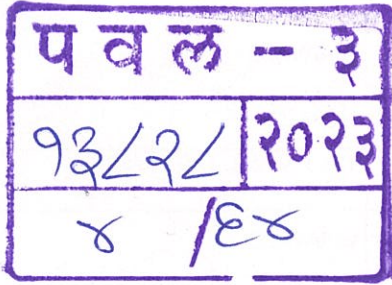 पवल - ३
१३८२८ २०२३
४ /६४